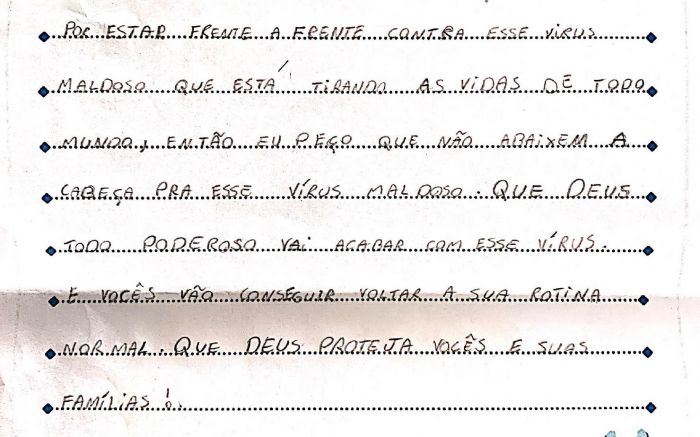 POR ESTAR FRENTE A FRENTE CONTRA ESSE VIRUS
MALDOSO QUE ESTÁ TIRANDO AS VIDAS DE TODO
MUNDO, ENTÃO EU PEÇO QUE NÃO ABAIXEM A
CABEÇA PRA ESSE VÍRUS MALDOSO. QUE DEUS
TODO PODEROSO VAI ACABAR COM ESSE VÍRUS.
E VOCÊS VÃO CONSEGUIR VOLTAR A SUA ROTINA
NORMAL. QUE DEUS PROTEJA VOCÊS E SUAS
FAMÍLIAS!